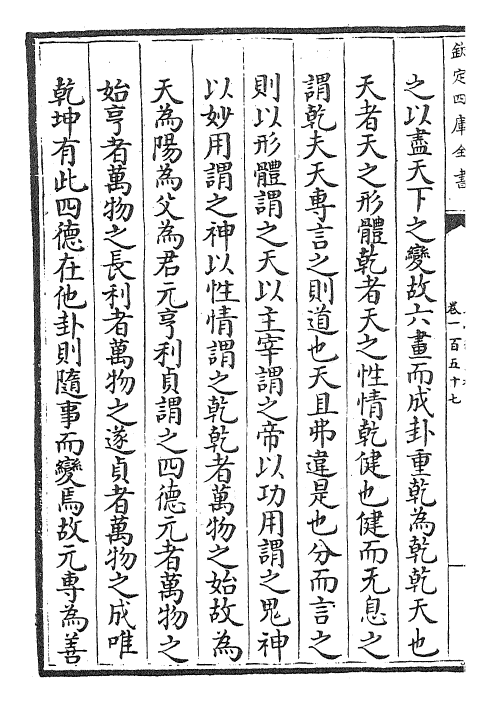 欽定四庫全書
卷一百五十七
之以盡天下之變故六畫而成卦重乾為乾乾天也
天者天之形體乾者天之性情乾健也健而无息之
謂乾夫天專言之則道也天且弗違是也分而言之
則以形體謂之天以主宰謂之帝以功用謂之鬼神
以妙用謂之神以性情謂之乾乾者萬物之始故為
天為陽為父為君元亨利貞謂之四德元者萬物之
始亨者萬物之長利者萬物之遂貞者萬物之成唯
乾坤有此四德在他卦則隨事而變焉故元專為善